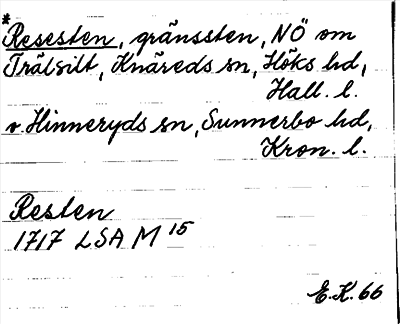 *
Resesten, gränssten, NÖ om
Trälsilt, Knäreds sn, Höks hd,
Hall. l.
v. Hinneryds sn, Sunnerbo hd,
Kron. l.
Resten
1717 LSA M 15
E.K. 66